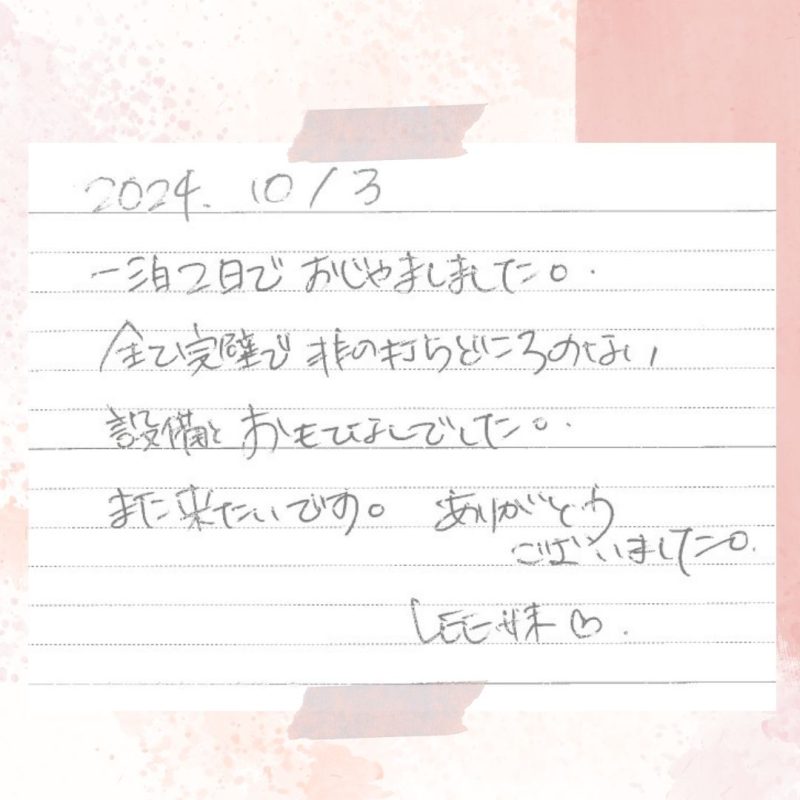 2024. 10/3
一泊2日で おじゃましました。
全て完璧で 非の打ちどころのない
設備と おもてなしでした。
また来たいです。 ありがとう
ございました。
LEE妹♡.